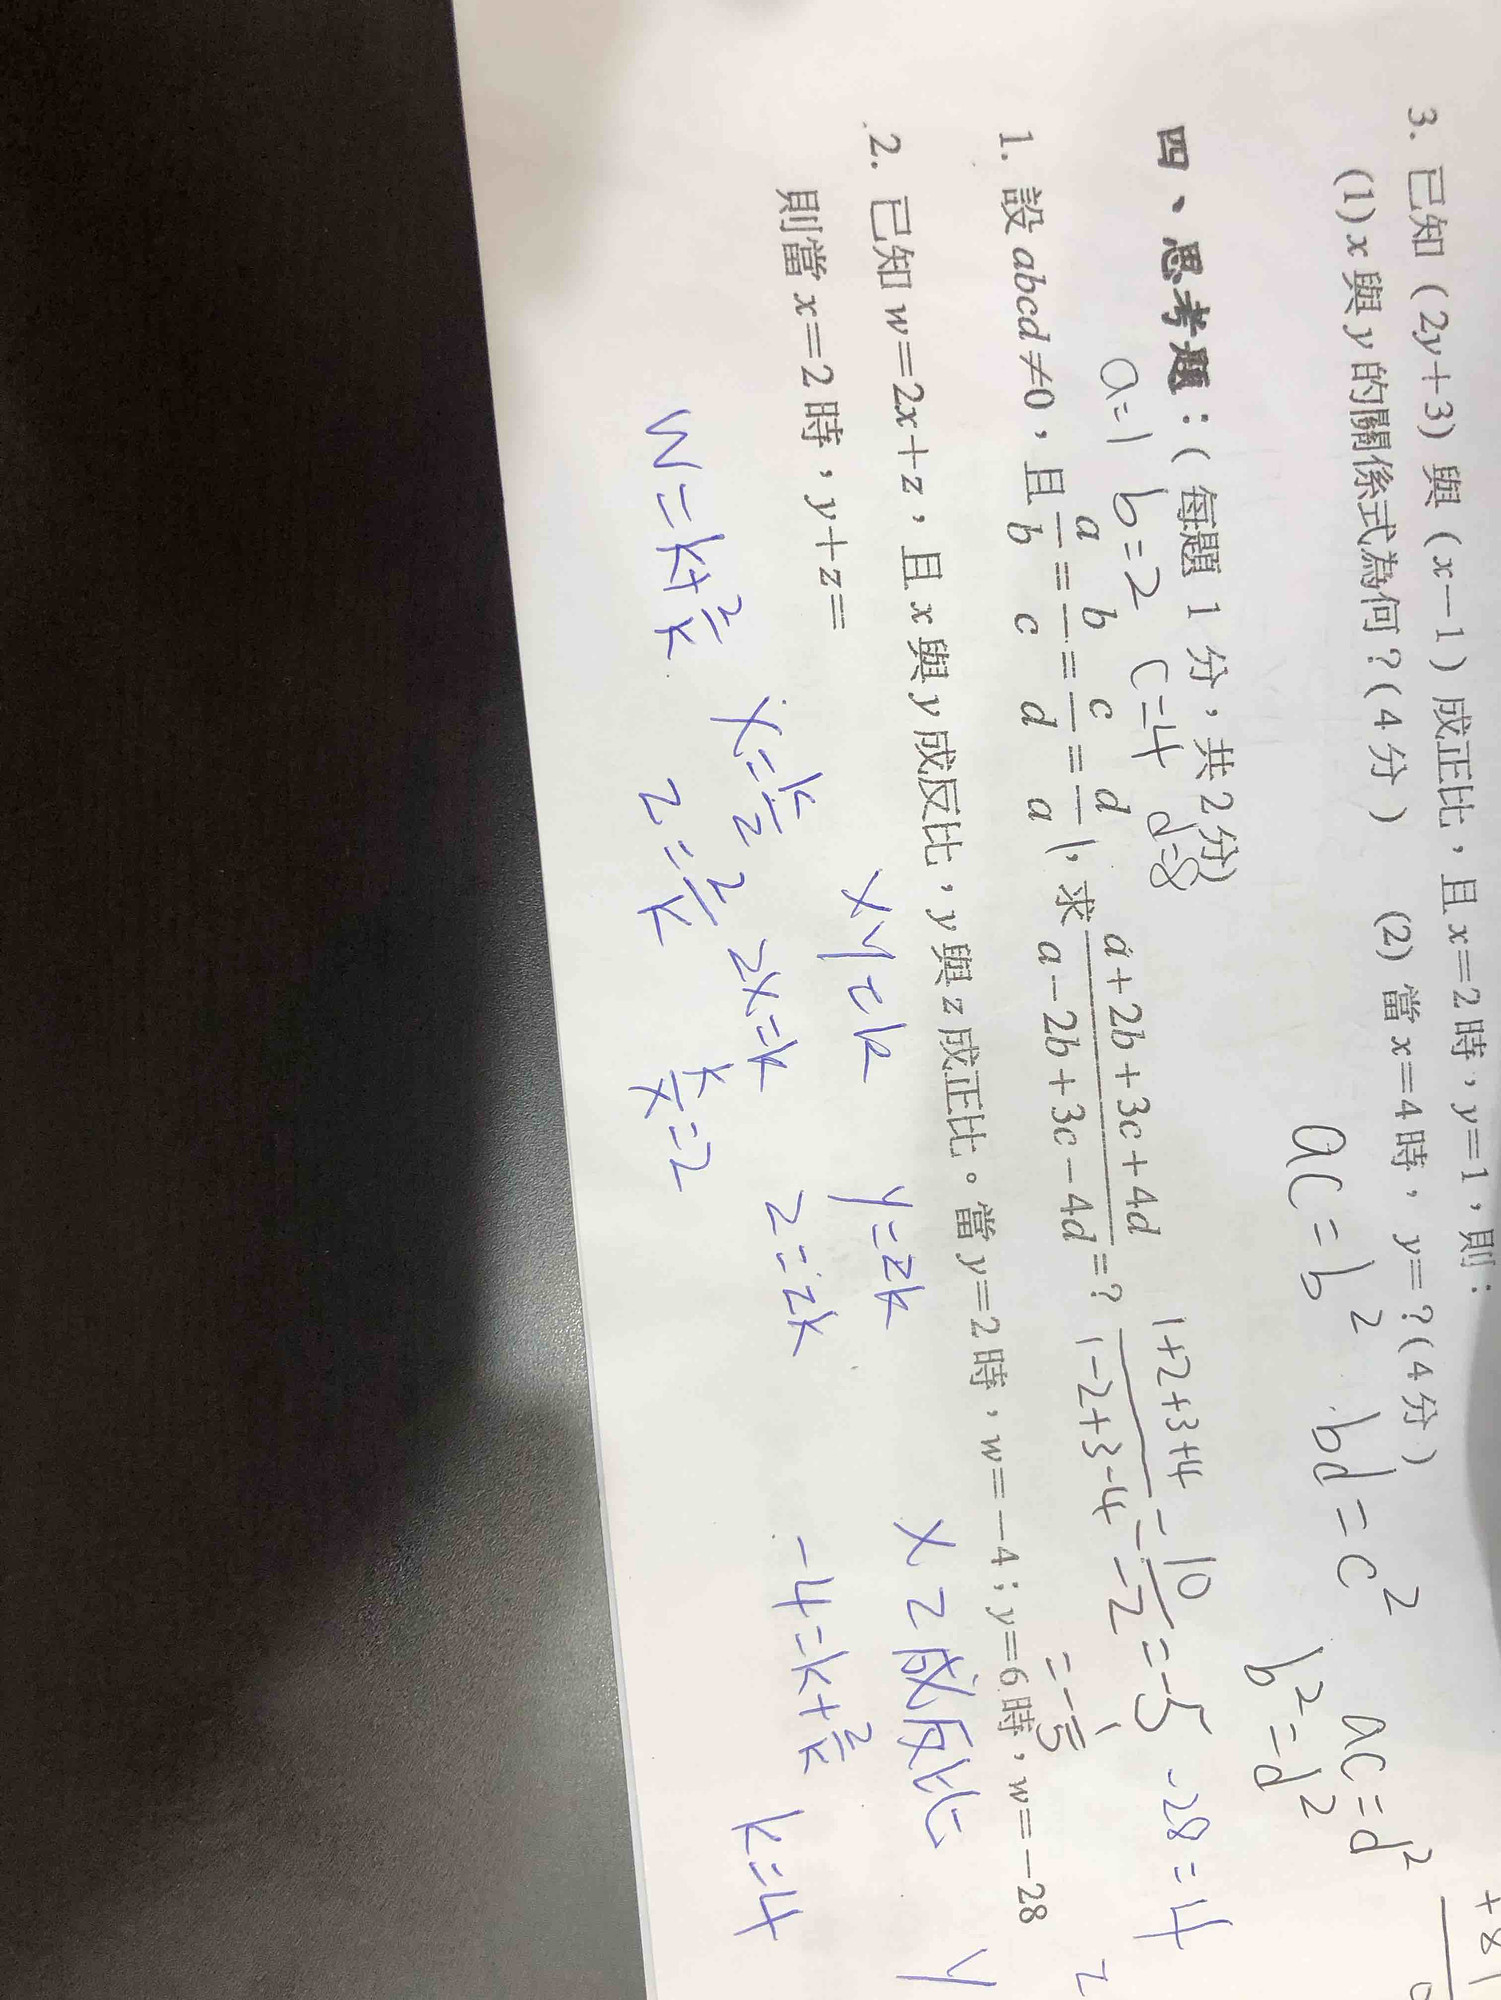 3. 已知（2y+3）與（x－1）成正比，且x＝2時，y＝1，則：
(1) x與y的關係式為何？(4分) (2) 當x＝4時，y＝？(4分)
ac=b² bd=c² ac=d²
b²=d²
四、思考題：(每題1分，共2分)
a=1 b=2 c=4 d=8
1. 設abcd≠0，且a/b=b/c=c/d=d/a，求(a+2b+3c+4d)/(a-2b+3c-4d)=?
(1+2+3+4)/(1-2+3-4)=10/-2=-5
-28=4
2. 已知w＝2x＋z，且x與y成反比，y與z成正比。當y＝2時，w＝－4；y＝6時，w＝－28
則當x＝2時，y＋z＝
xy=k y=zk x z成反比 y
x=k/2 2x=k 2=zk -4=k+2/k
w=k+2/k z=2/k k/x=2 k=4